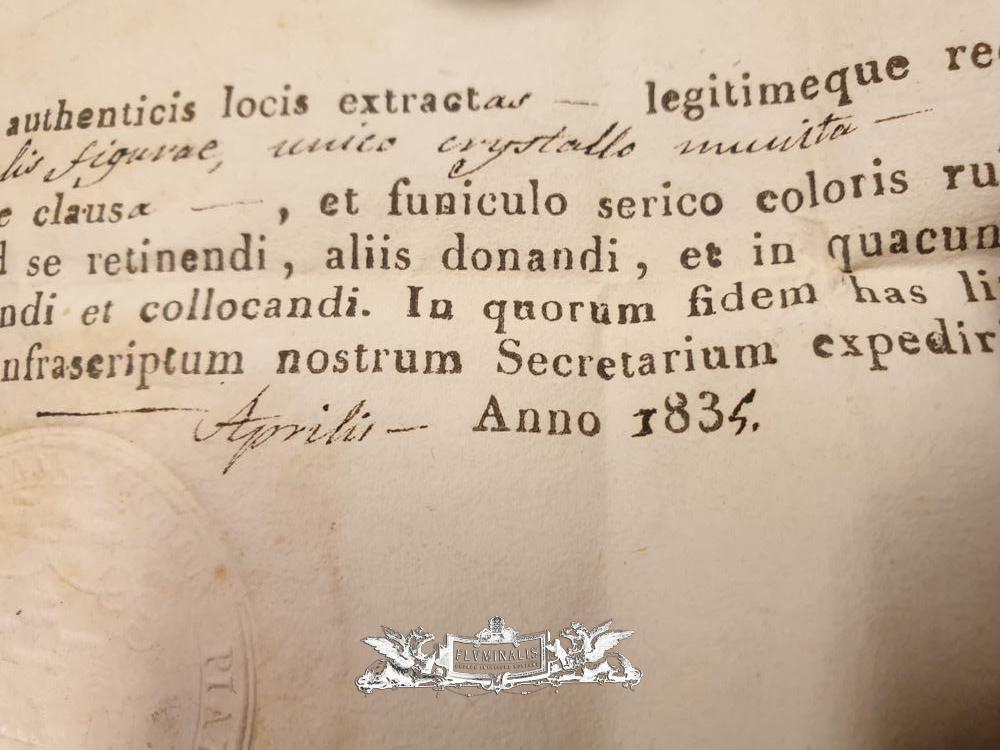 authenticis locis extractas — legitimeque re
lis figurae, unico crystallo munita —
e clausa — , et funiculo serico coloris ru
d se retinendi, aliis donandi, et in quacun
ndi et collocandi. In quorum fidem has li
nfrascriptum nostrum Secretarium expedir
— Aprilis — Anno 1835.
PIA
FLVMINALIS